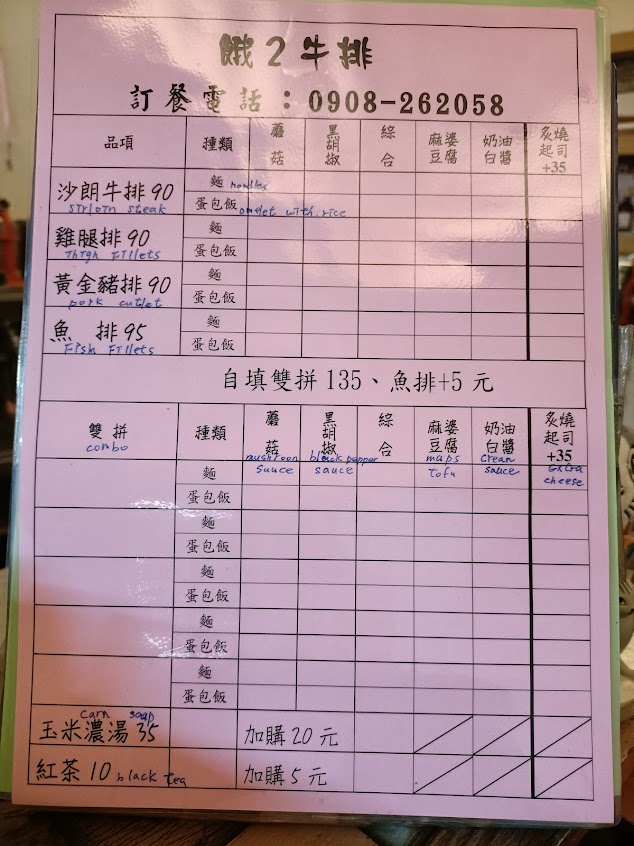 餓2牛排
訂餐電話：0908-262058
品項 種類 蘑菇 黑胡椒 綜合 麻婆豆腐 奶油白醬 炙燒起司+35
沙朗牛排90 麵 noodles
sirloin steak 蛋包飯 omelet with rice
雞腿排90 麵
thigh fillets 蛋包飯
黃金豬排90 麵
pork cutlet 蛋包飯
魚 排95 麵
Fish Fillets 蛋包飯
自填雙拼135、魚排+5元
雙拼 種類 蘑菇 黑胡椒 綜合 麻婆豆腐 奶油白醬 炙燒起司+35
combo mushroon sauce black pepper sauce maps tofu crean sauce extra cheese
麵
蛋包飯
麵
蛋包飯
麵
蛋包飯
麵
蛋包飯
麵
蛋包飯
carn soup
玉米濃湯35 加購20元
紅茶10 black tea 加購5元